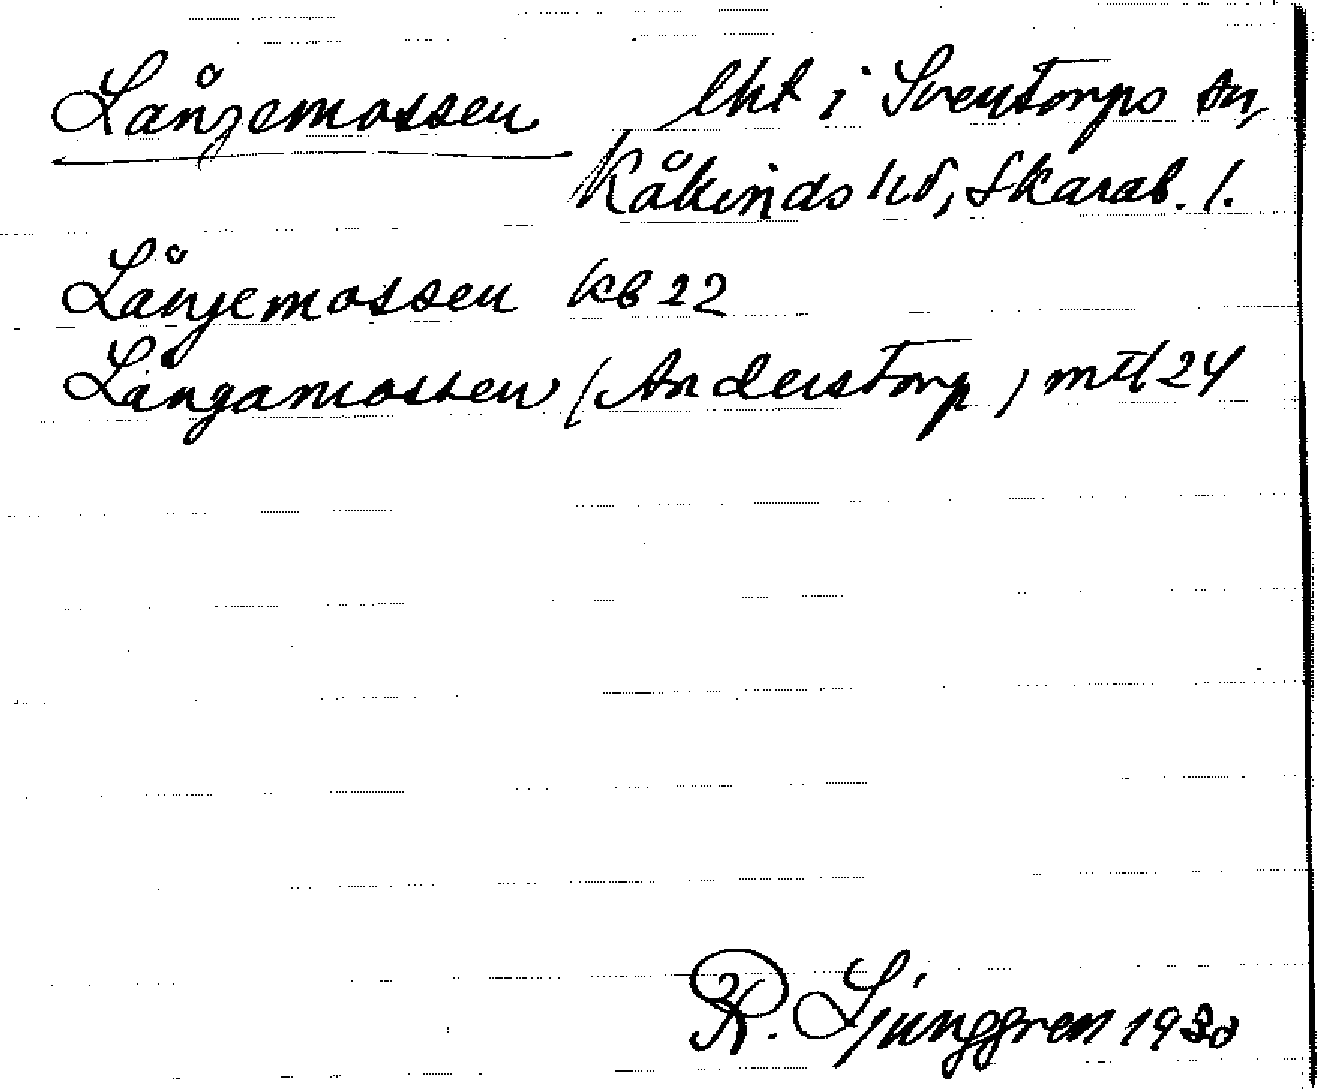 Långemossen lht i Sventorps sn,
Kåkinds hd, Skarab. l.
Långemossen kb 22
Långamossen (Anderstorp) mtl 24
R. Ljunggren 1930